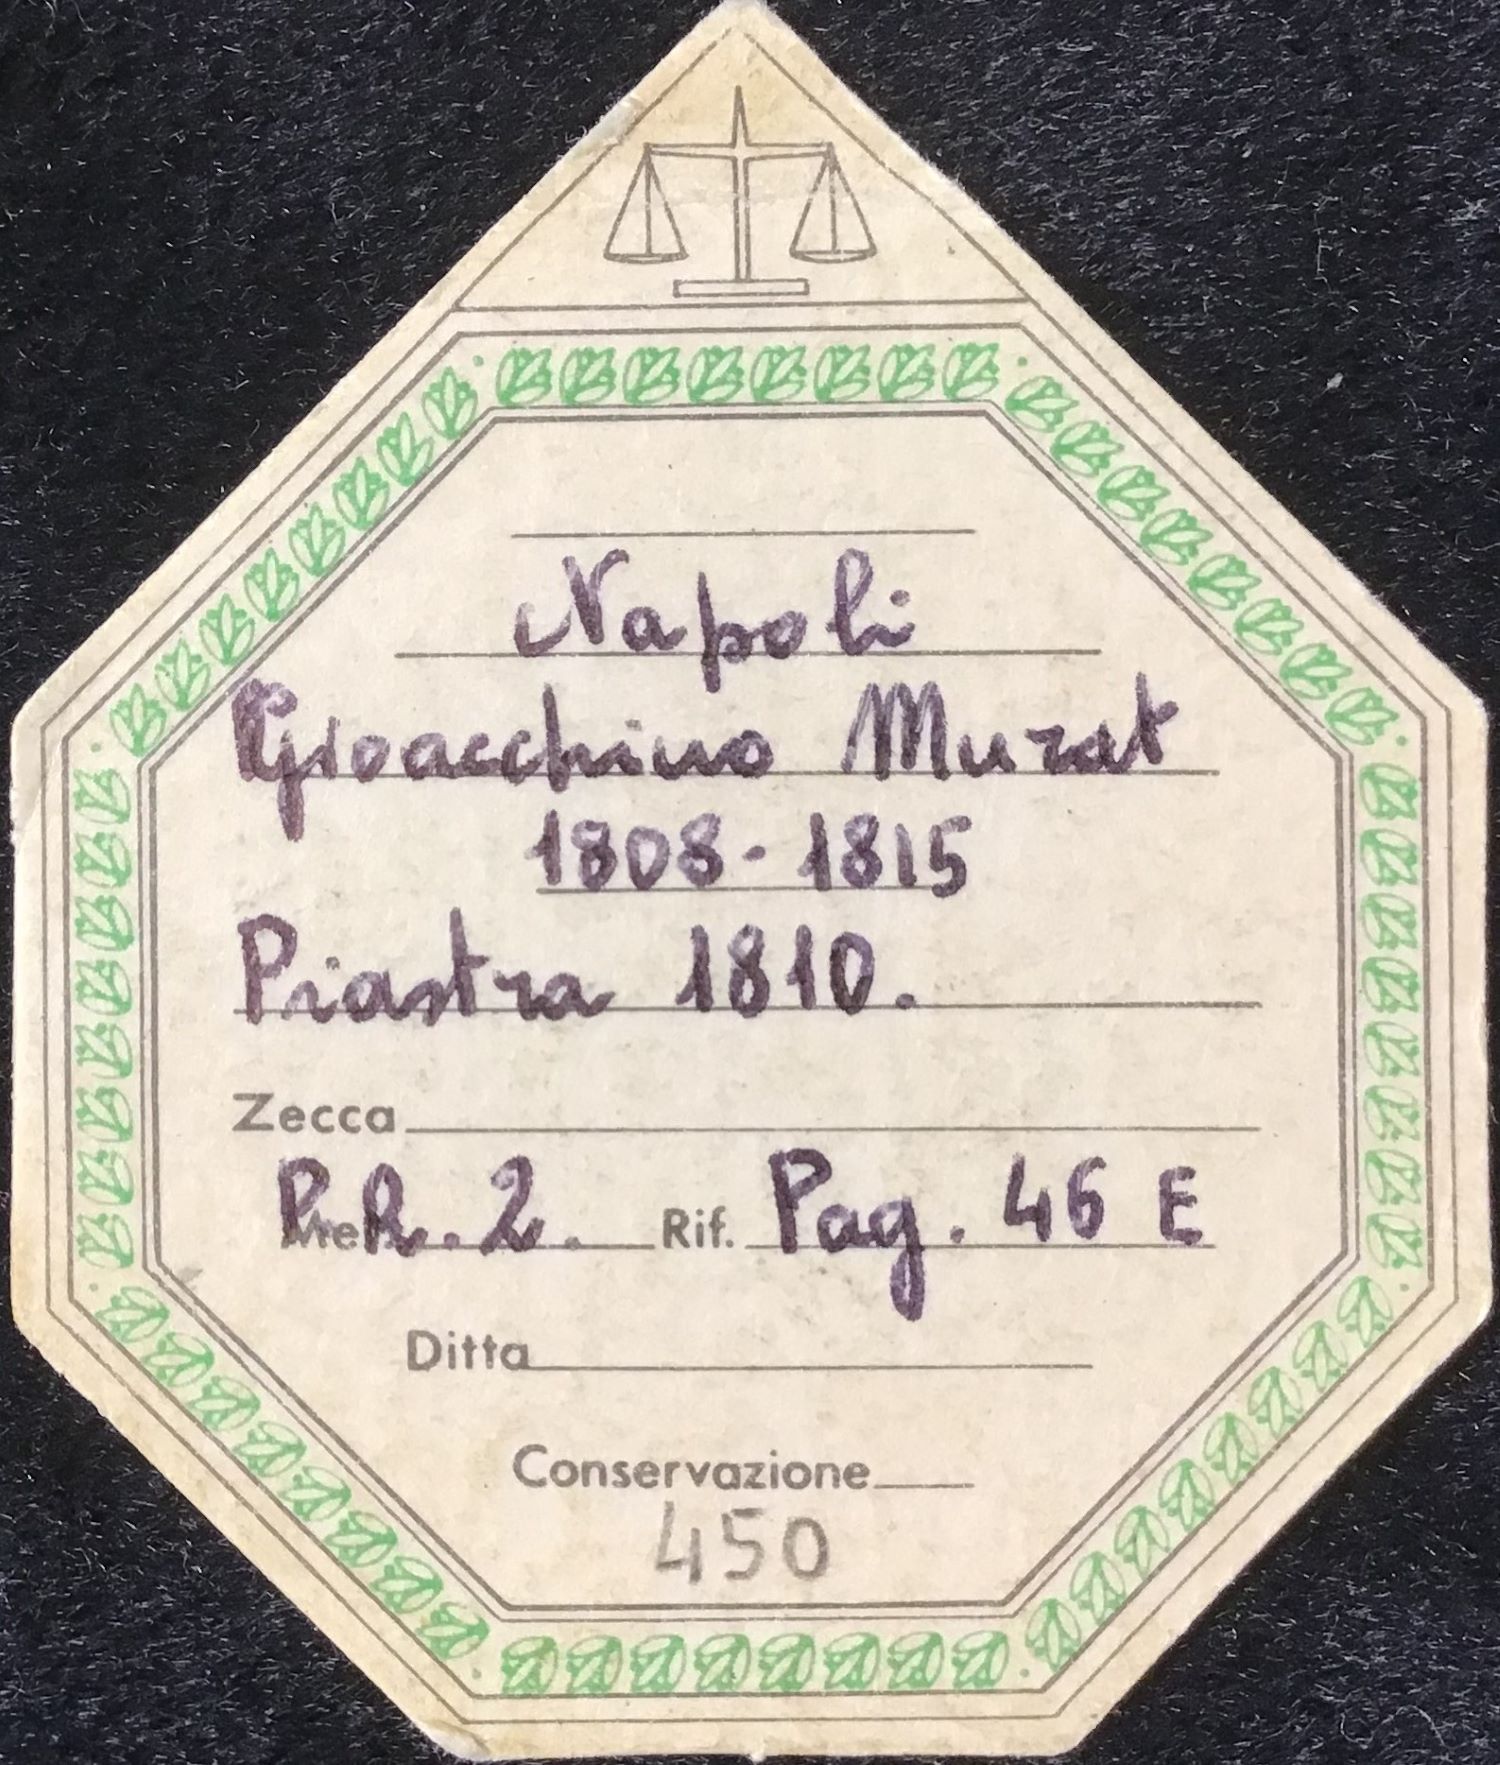 Napoli
Gioacchino Murat
1808-1815
Piastra 1810.
Zecca
P.R.2. Rif. Pag. 46 E
Ditta
Conservazione
450